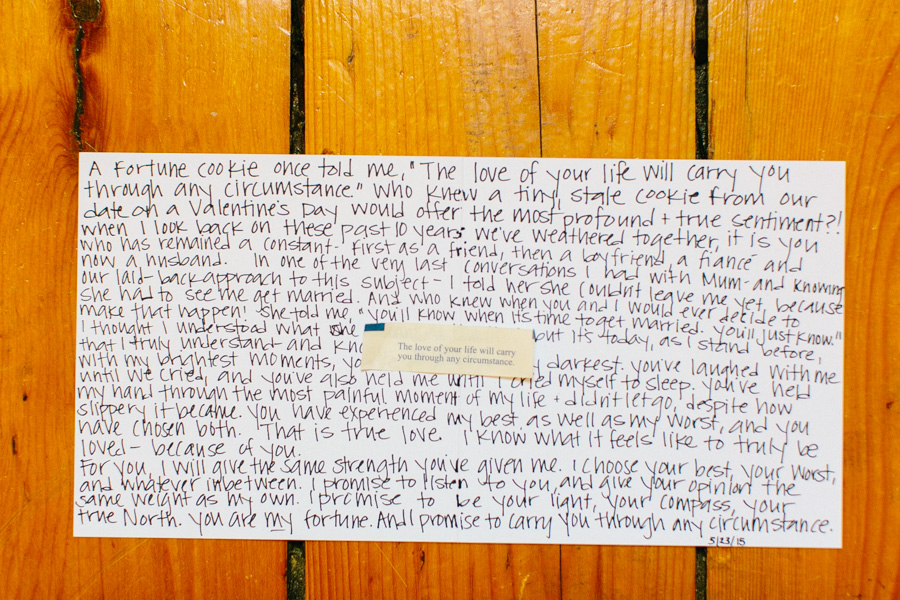 A Fortune cookie once told me, "The love of your life will carry you
through any circumstance." Who knew a tiny, stale cookie from our
date on a Valentine's Day would offer the most profound + true sentiment?!
When I look back on these past 10 years we've weathered together, it is you
who has remained a constant- first as a friend, then a boyfriend, a fiancé and
now a husband. In one of the very last conversations I had with Mum- and knowing
our laid-back approach to this subject- I told her she couldn't leave me yet, because
she had to see me get married. And who knew when you and I would ever decide to
make that happen! She told me, "you'll know when its time to get married. You'll just know."
I thought I understood what she but its today, as I stand before,
that I truly understand- and
The love of your life will carry
you through any circumstance.
with my brightest moments, darkest. You've laughed with me
until we cried, and you've also held me until I cried myself to sleep. You've held
my hand through the most painful moment of my life + didn't let go, despite how
slippery it became. You have experienced my best as well as my worst, and you
have chosen both. That is true love. I know what it feels like to truly be
loved- because of you.
For you, I will give the same strength you've given me. I choose your best, your worst,
and whatever inbetween. I promise to listen to you, and give your opinion the
same weight as my own. I promise to be your light, your compass, your
true North. You are my fortune. And I promise to carry you through any circumstance.
5/23/15